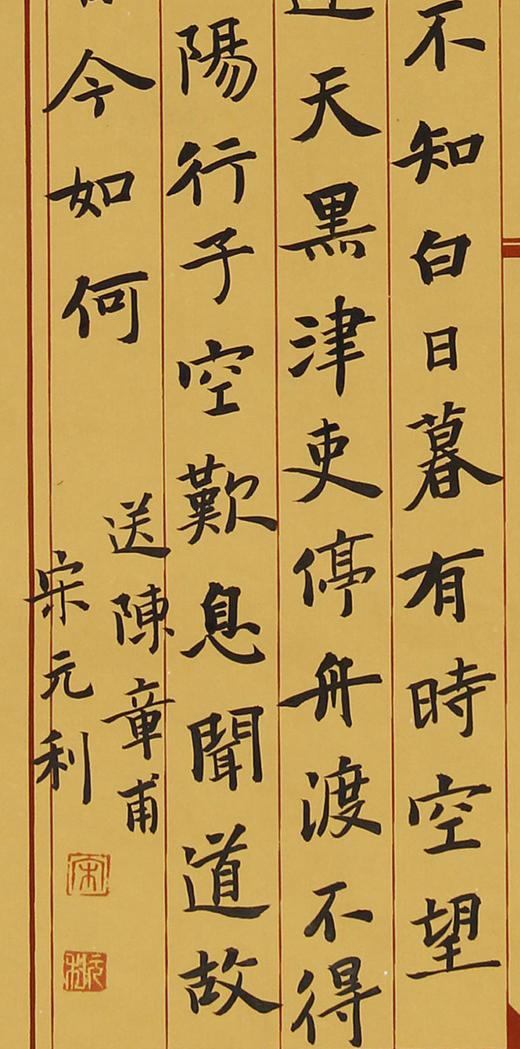 不知白日暮有時空望
天黑津吏停舟渡不得
陽行子空歎息聞道故
今如何
送陳章甫
宋元利
宋
元利